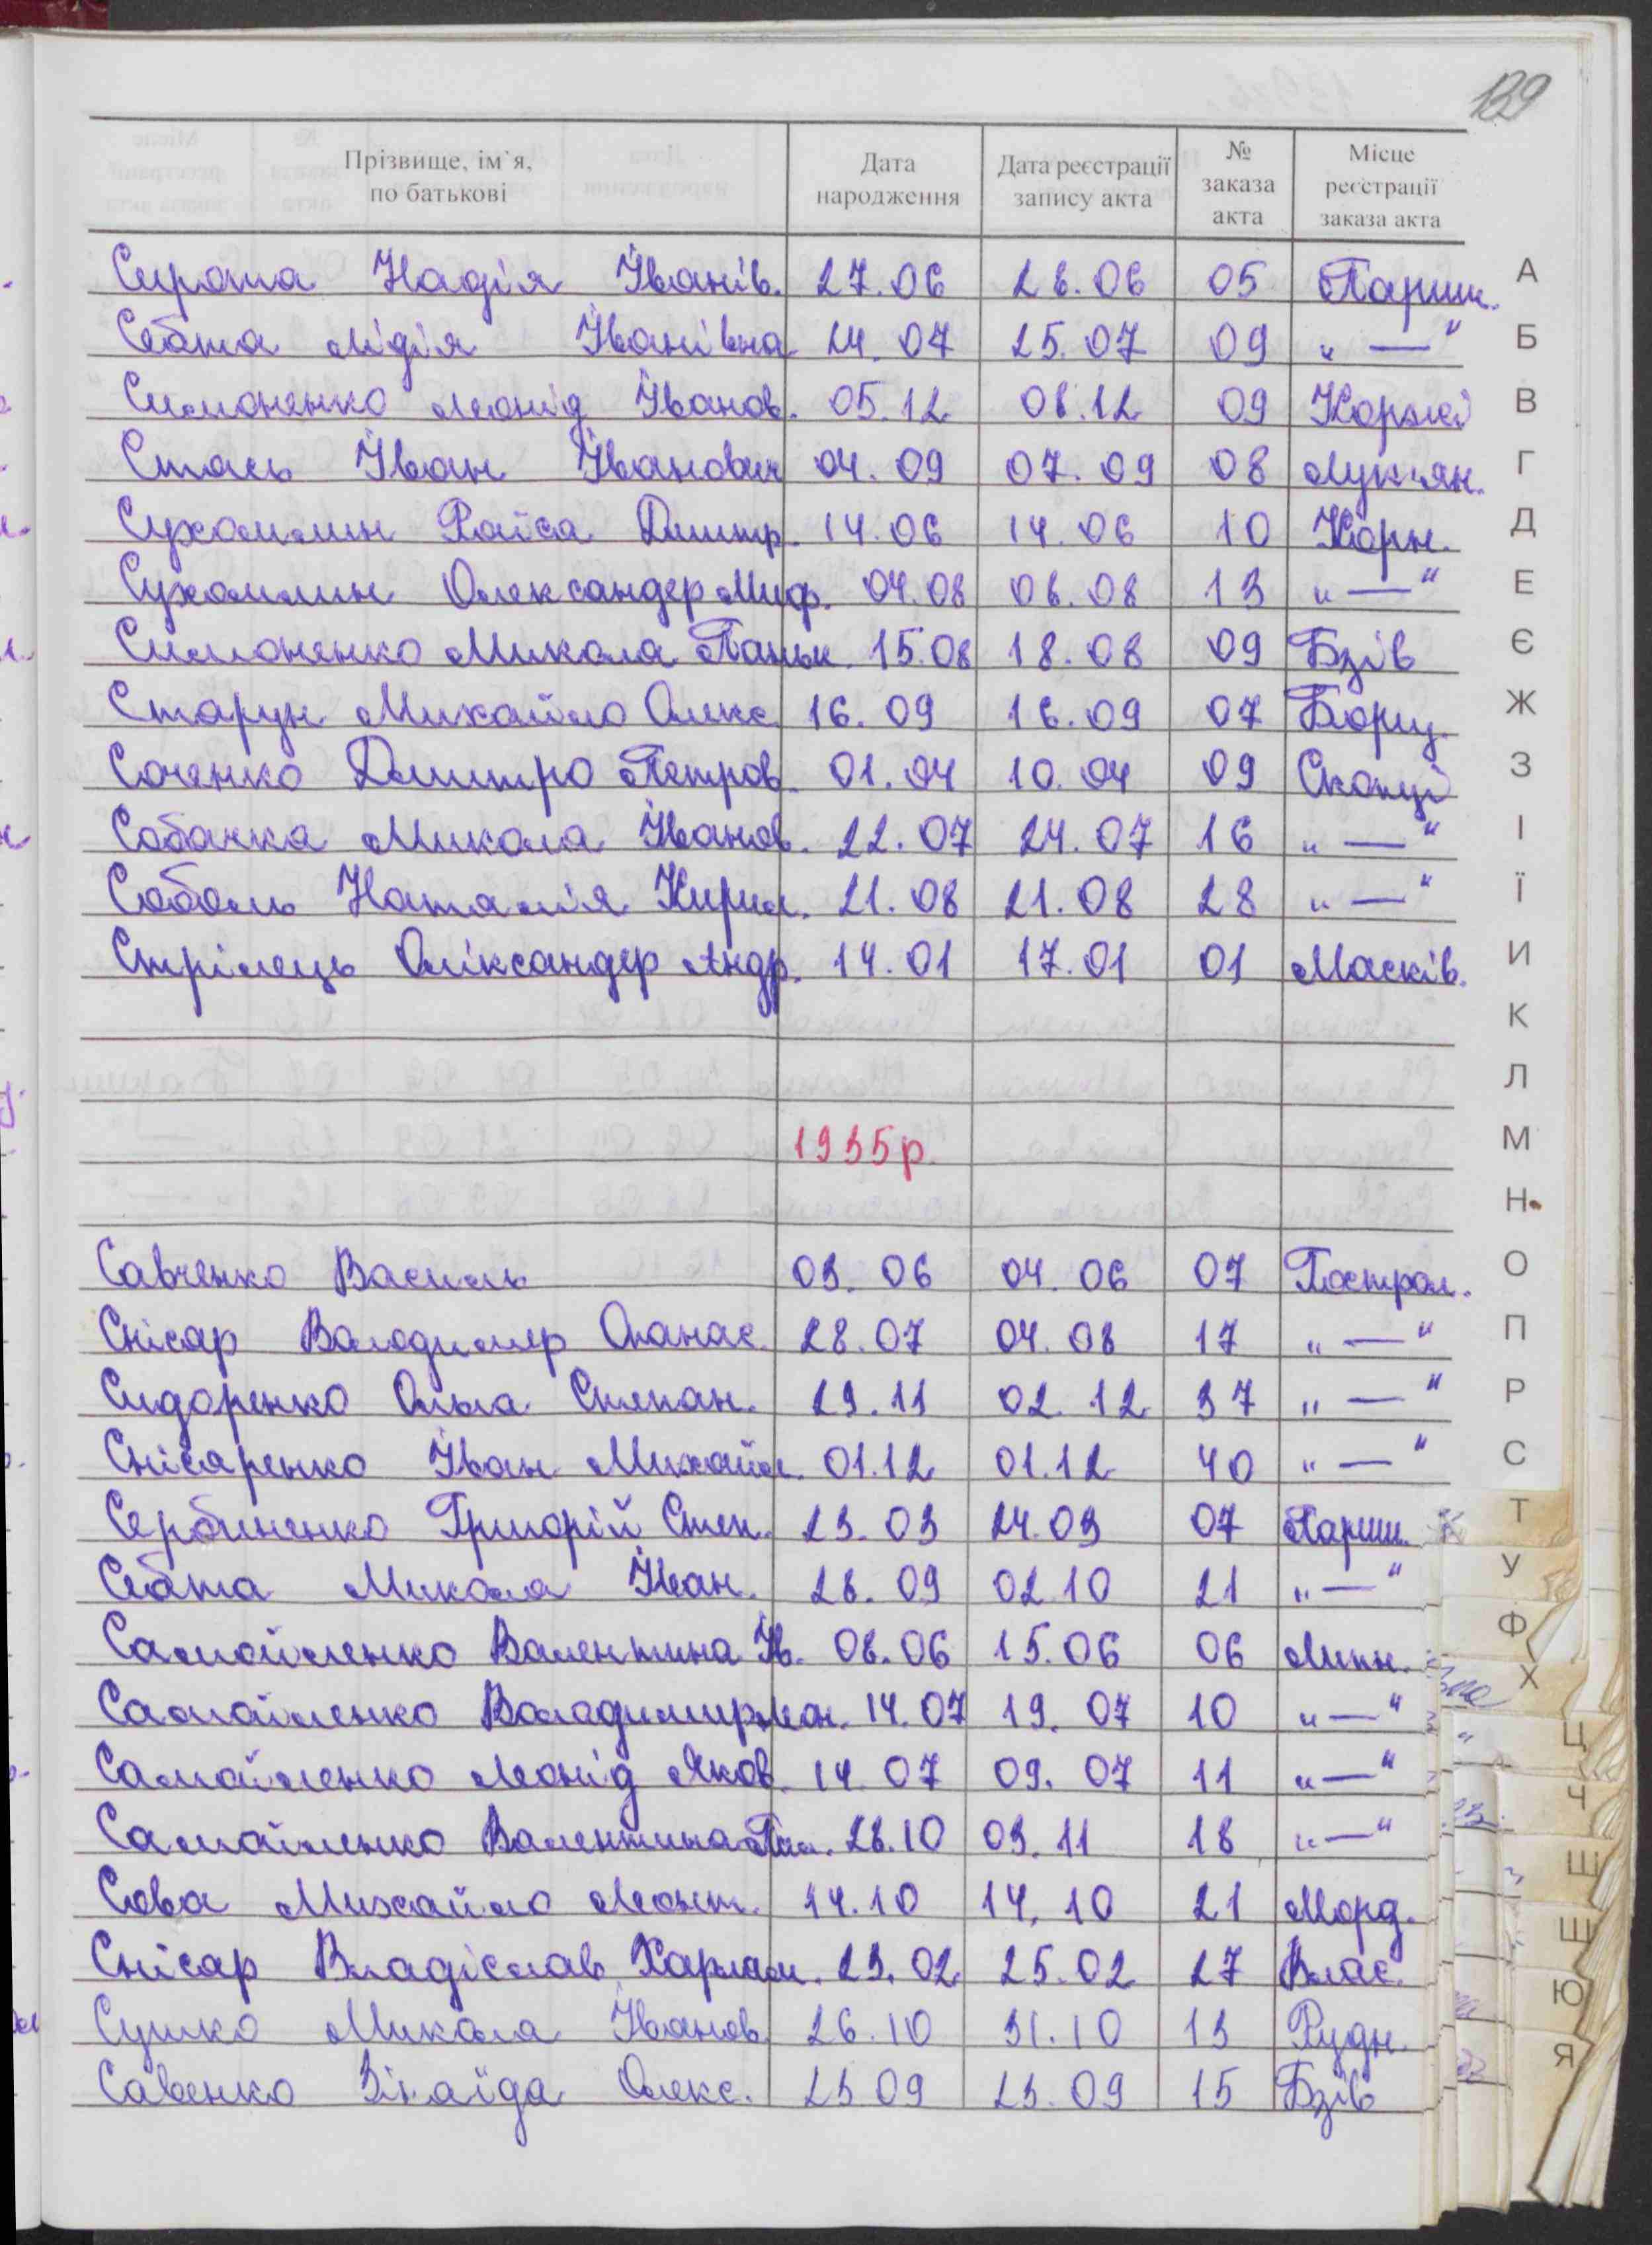 139
Прізвище, ім`я, по батькові | Дата народження | Дата реєстрації запису акта | № заказа акта | Місце реєстрації заказа акта
Сирота Надія Іванів. 27.06 28.06 05 Париш.
Себта Лідія Іванівна 24.07 25.07 09 „ — “
Симоненко Леонід Іванов. 05.12 08.12 09 Коржі
Стась Іван Іванович 04.09 07.09 08 Лук'ян.
Сухомлин Раїса Дмитр. 14.06 14.06 10 Корж.
Сухомлин Олександер Миф. 04.08 08.08 13 „ — “
Симоненко Микола Паньк. 15.08 18.08 09 Бзів
Старун Михайло Олекс. 16.09 16.09 07 Борщ.
Соченко Дмитро Петров. 01.04 10.04 09 Скопці
Собачка Микола Іванов. 22.07 24.07 16 „ — “
Соболь Наталія Кирил. 21.08 21.08 28 „ — “
Стрілець Оліксандер Андр. 14.01 17.01 01 Масків.
1935р.
Савченко Василь 03.06 04.06 07 Гостров.
Снісар Володимир Опанас. 28.07 04.08 17 „ — “
Сидоренко Ольга Степан. 29.11 02.12 37 „ — “
Снісаренко Іван Михайл. 01.12 01.12 40 „ — “
Сербиненко Григорій Степ. 23.03 24.03 07 Париш.
Себта Микола Іван. 28.09 02.10 21 „ — “
Самойленко Валентина Ів. 08.06 15.06 06 Липн.
Самойленко Володимир Леон. 14.07 19.07 10 „ — “
Самойленко Леонід Яков. 14.07 09.07 11 „ — “
Самойленко Валентина 28.10 03.11 18 „ — “
Сова Михайло Леонт. 14.10 14.10 21 Морд.
Снісар Владіслав Харлам. 23.02 25.02 27 Влас.
Сушко Микола Іванов. 26.10 31.10 13 Рудн.
Савенко Зінаїда Олекс. 23.09 23.09 15 Бзів
А
Б
В
Г
Д
Е
Є
Ж
З
І
Ї
И
К
Л
М
Н
О
П
Р
С
Т
У
Ф
Х
Ц
Ч
Ш
Щ
Ю
Я